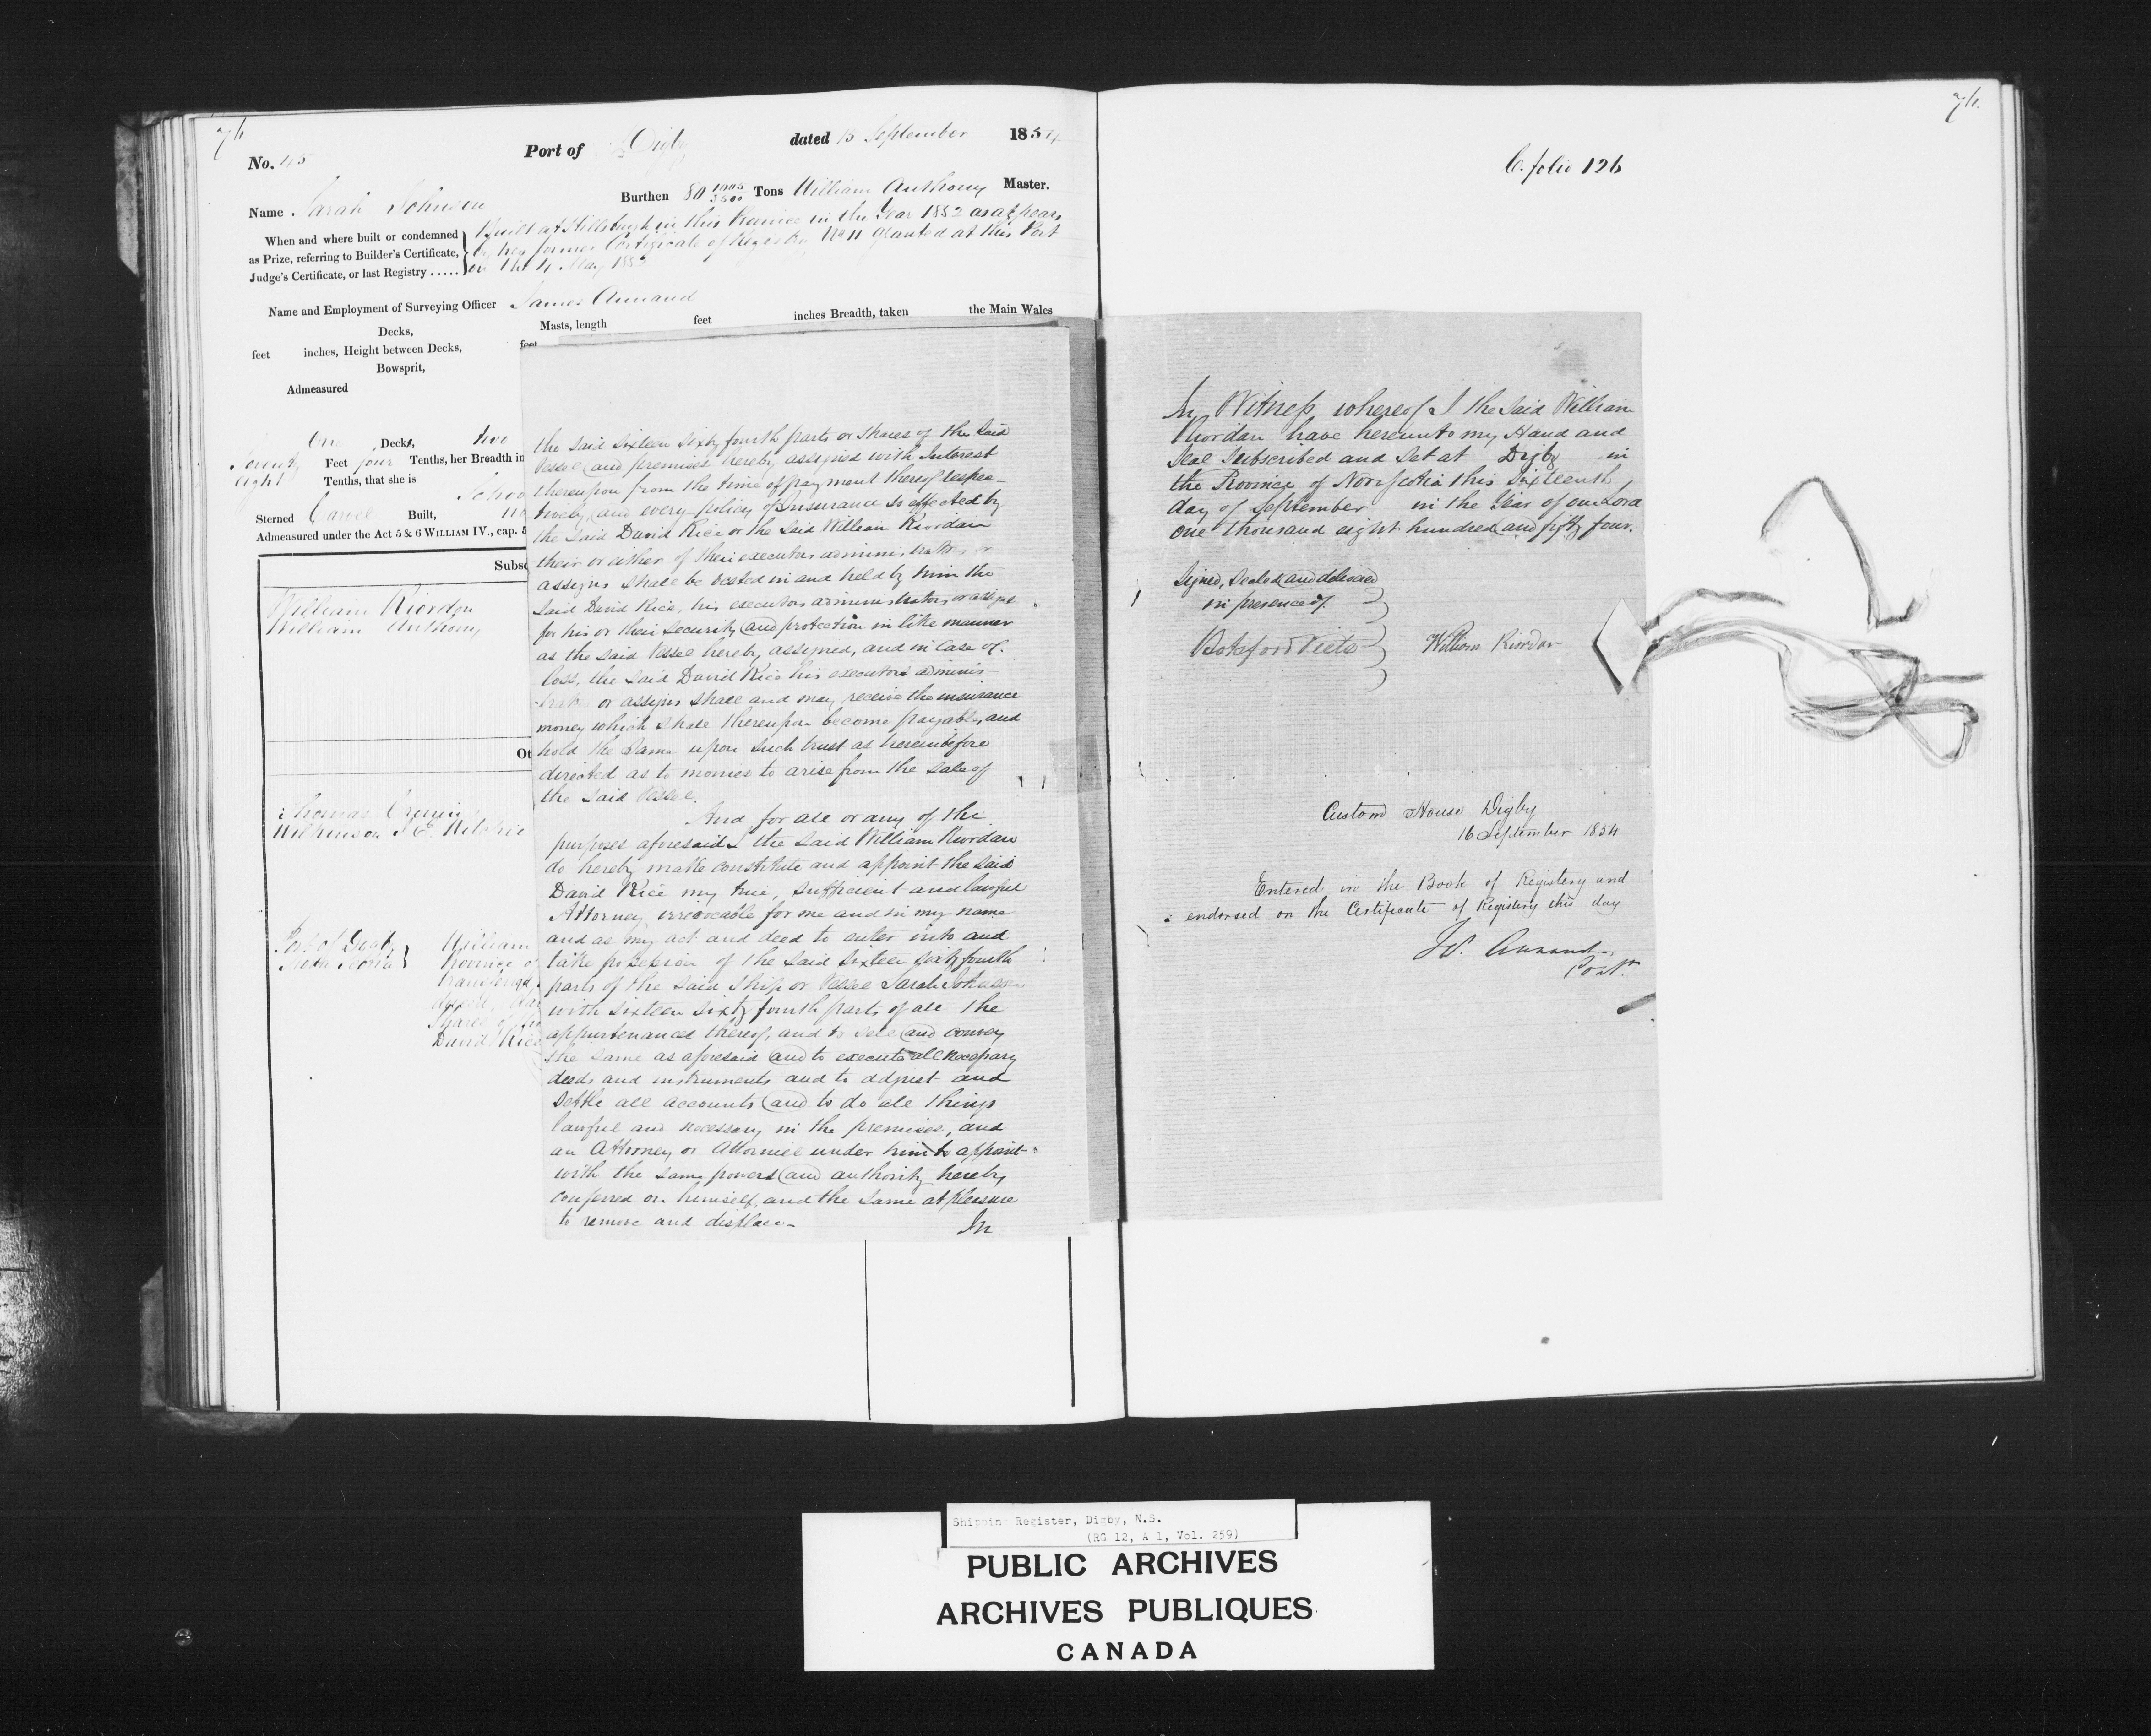 76
No. 45 Port of Digby dated 15 September 1854
Name Sarah Johnson Burthen 80 1005/3500 Tons William Anthony Master.
When and where built or condemned
as Prize, referring to Builder's Certificate,
Judge's Certificate, or last Registry .....
Built at in this Province in the Year 1852 as appears
by her former Certificate of Registry No 11 granted at this Port
on the 4 May 1852
Name and Employment of Surveying Officer James Annand
Masts, length feet inches Breadth, taken the Main Wales
Decks, feet
feet inches, Height between Decks,
Bowsprit,
Admeasured
One Decks, two
Seventy Feet four Tenths, her Breadth in
eight Tenths, that she is
Schoo
Sterned Carvel Built, no
Admeasured under the Act 5 & 6 WILLIAM IV., cap. 5
Subsc
William Riordon
William Anthony
Ot
Thomas Cronin
Port of Digby William
Nova Scotia Province o
transferred
Shares of
David Rice
the said sixteen sixty fourth parts or shares of the said
Vessel and premises hereby assigned with Interest
thereupon from the time of payment thereof respec-
tively and every policy of Insurance so effected by
the said David Rice or the said William Riordan
their or either of their executors administrators or
assigns shall be vested in and held by him the
said David Rice, his executors administrators or assigns
for his or their security and protection in like manner
as the said Vessel hereby assigned, and in case of
loss, the said David Rice his executors adminis
trators or assigns shall and may receive the insurance
money which shall thereupon become payable, and
hold the same upon such trust as hereinbefore
directed as to monies to arise from the sale of
the said Vessel.
And for all or any of the
purposes aforesaid I the said William Riordan
do hereby make constitute and appoint the said
David Rice my true, sufficient and lawful
Attorney irrevocable for me and in my name
and as my act and deed to enter into and
take possession of the said sixteen sixty fourth
parts of the said Ship or Vessel Sarah Johnson
with sixteen sixty fourth parts of all the
appurtenances thereof, and to sell and convey
the same as aforesaid and to execute all necessary
deeds and instruments and to adjust and
settle all accounts and to do all things
lawful and necessary in the premises, and
an Attorney or Attornies under him to appoint
with the same powers and authority hereby
conferred on himself and the same at pleasure
to remove and displace.
In
76.
C. folio 126
In Witness whereof I the said William
Riordan have hereunto my Hand and
Seal subscribed and set at Digby in
the Province of Nova Scotia this Sixteenth
day of September in the Year of our Lord
one thousand eight hundred and fifty four.
Signed, Sealed and delivered
in presence of
Botsford Viets William Riordon
Custom House Digby
16 September 1854
Entered in the Book of Registery and
endorsed on the Certificate of Registery this day
Annand
Shipping Register, Digby, N.S.
(RG 12, A 1, Vol. 259)
PUBLIC ARCHIVES
ARCHIVES PUBLIQUES
CANADA